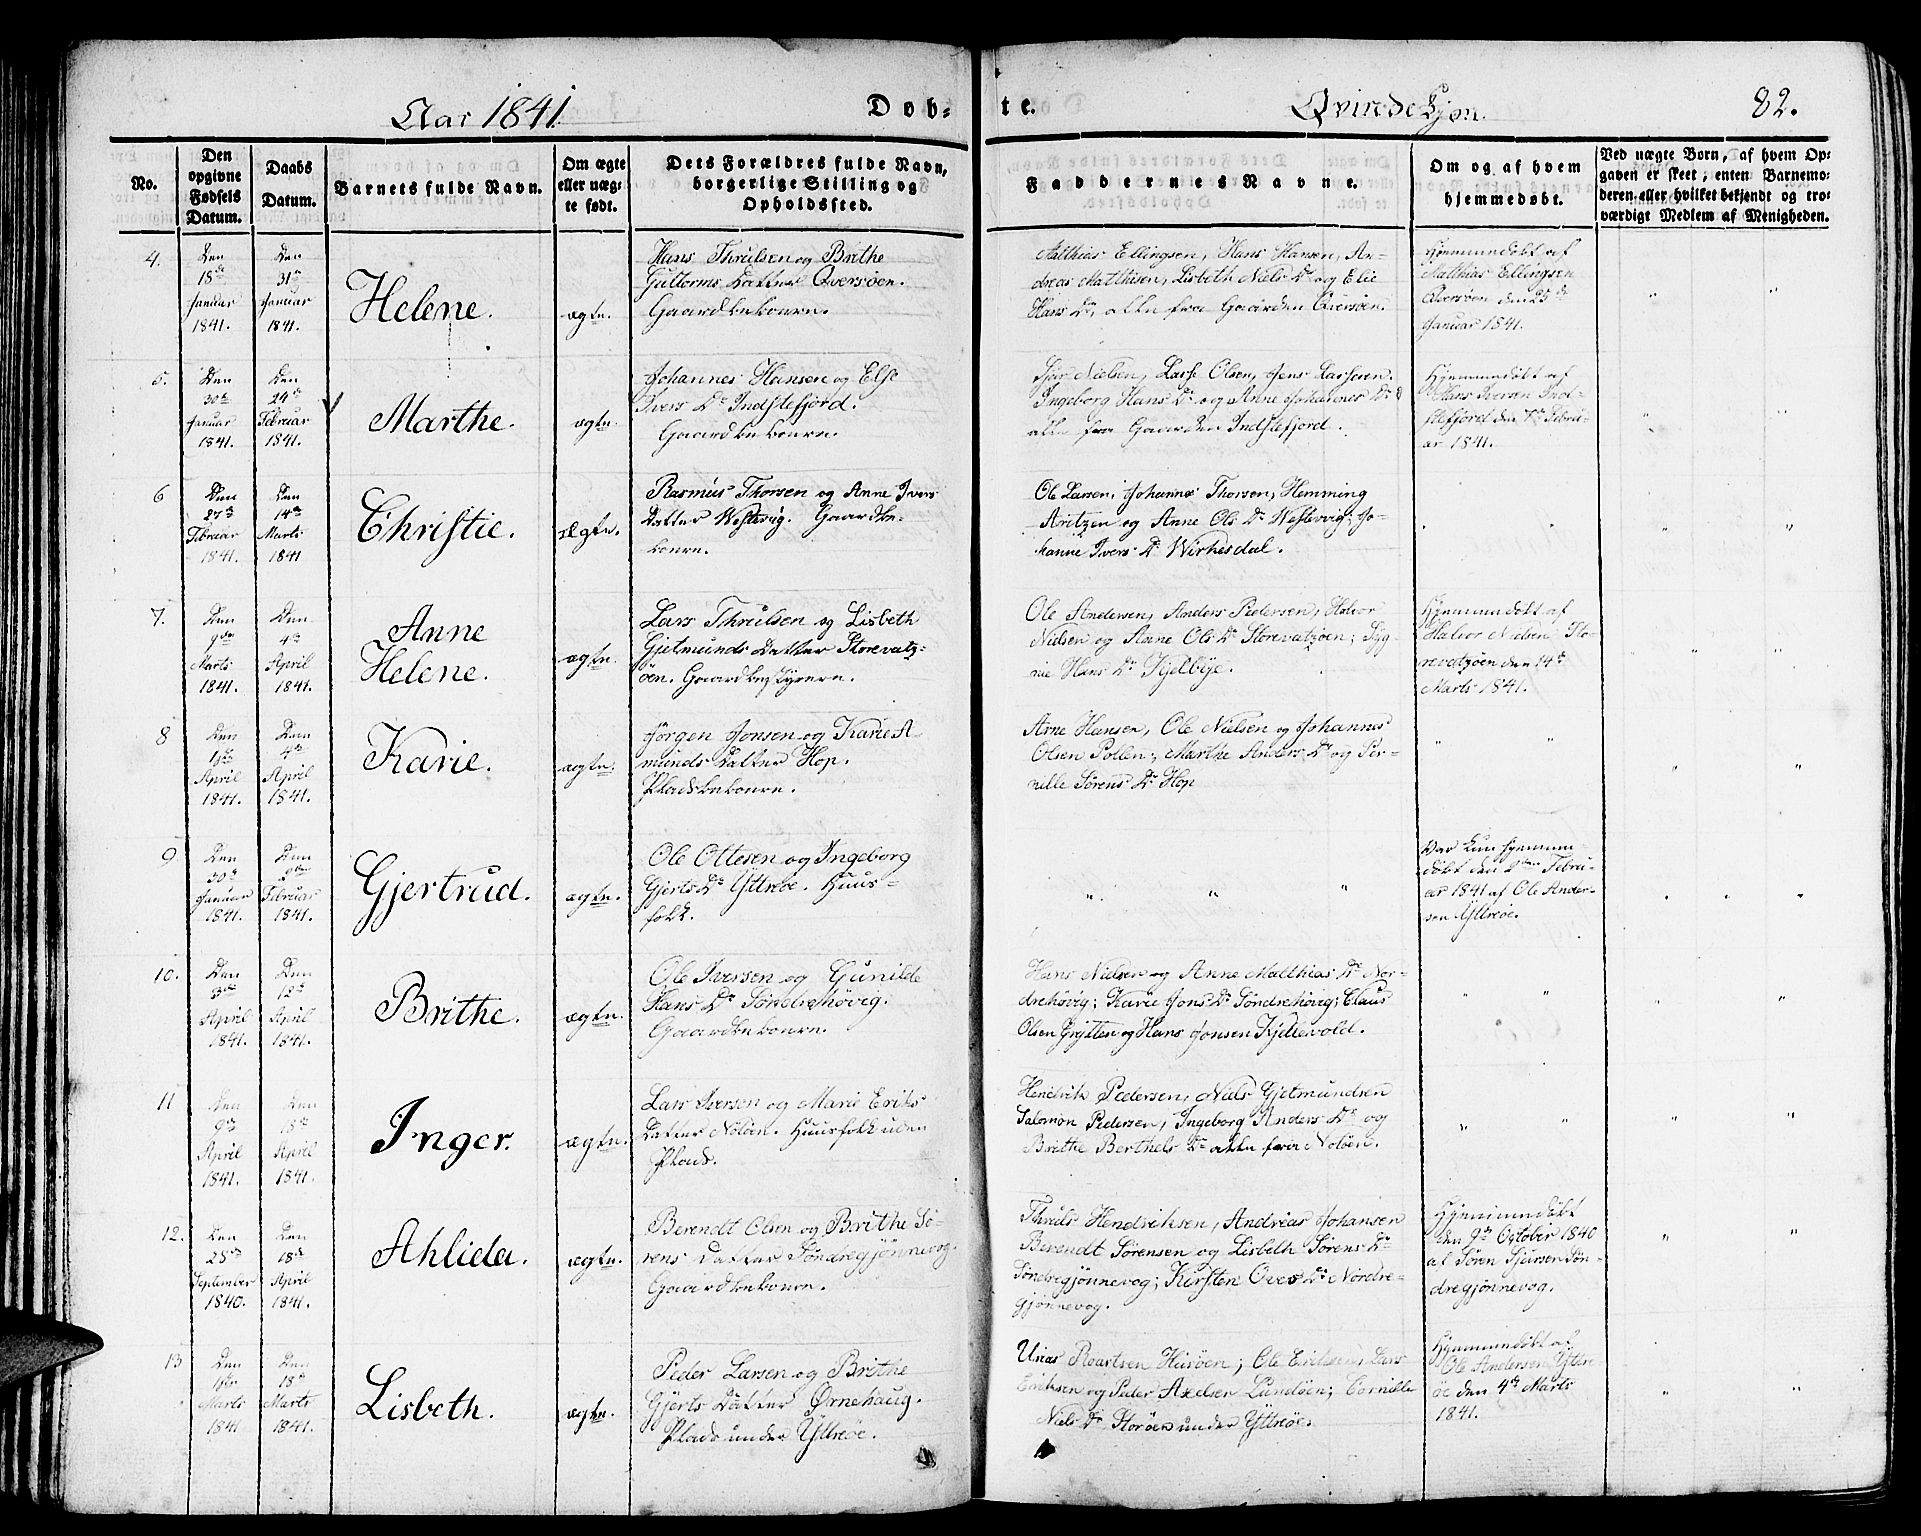 Aar 1841
Døb-
te.
Qvindekjøn.
82.
No.
Den
opgivne
Fødsels
Datum.
Daabs
Datum.
Barnets fulde Navn.
Om ægte
eller uæg-
te født.
Dets Forældres fulde Navn,
borgerlige Stilling og
Opholdssted.
Faddernes Navne.
Om og af hvem
hjemmedøbt.
Ved uægte Børn, af hvem Op-
gaven er skeet, enten Barnemo-
deren eller hvilket bekjendt og tro-
værdigt Medlem af Menigheden.
4.
Den
18de
Januar
1841.
Den
31te
Januar
1841.
Helene.
ægte.
Hans Thrulsen og Brithe
Guttorms Datter Qversøen.
Gaardbrukere.
Matthias Ellingsen, Hans Hansen, An-
dreas Matthisen, Lisbeth Niels Dr og Elie
Hans Dr, alle fra Gaarden Qversøen.
Hjemmedøbt af
Matthias Ellingsen
Qversøen den 25de
Januar 1841.
5.
Den
30te
Januar
1841.
Den
24de
Februar
1841.
Marthe.
ægte.
Johannes Hansen og Else
Ivers Dr Indstefjord.
Gaardbrukere.
Sjur Nielsen, Lars Olsen, Jens Larsen.
Ingeborg Hans Dr og Anne Johannes Dr
alle fra Gaarden Indstefjord.
Hjemmedøbt af
Hans Iversen Ind-
stefjord den Februi-
ar 1841.
6
Den
27de
Februar
1841.
Den
14de
Marts
1841
Christie.
ægte.
Rasmus Thorsen og Anne Ivers
Datter Westevig. Gaardbru-
kere.
Ole Larsen, Johannes Thorsen, Hemming
Aritzen og Anne Ols Dr Westevig; Jo-
hanne Ivers Dr Wirkesdal.
7.
Den
9de
Marts
1841.
Den
4de
April
1841.
Anne
Helene.
ægte.
Lars Thrulsen og Lisbeth
Gjetmunds Datter Storevatz-
øen. Gaardbestyrere.
Ole Andersen, Anders Pedersen, Halvor
Nielsen og Anne Ols Dr Storevatzøen; Syg-
nie Hans Dr Kjelbye.
Hjemmedøbt af
Halvor Nielsen Sto-
revatzøen den 14de
Marts 1841.
8
Den
1ste
April
1841.
Den
4de
April
1841.
Karie.
ægte.
Jørgen Jonsen og Karie A-
munds Datter Hop.
Pladsbrukere.
Arne Hansen, Ole Nielsen og Johannes
Olsen Pollen; Marthe Anders Dr og Per-
nille Sørens Dr Hop
9
Den
30te
Januar
1841.
Den
2den
Februar
1841.
Gjertrud.
ægte.
Ole Ottesen og Ingeborg
Gjerts Dr Yttreøe. Huus-
folk.
Var kun hjemme-
døbt den 2den Febru-
ar 1841 af Ole Ander-
sen Yttreøe.
10.
Den
3die
April
1841.
Den
12te
April
1841.
Brithe.
ægte.
Ole Iversen og Gunilde
Hans Dr Søndrehøvig.
Gaardbrukere.
Hans Nielsen og Anne Matthias Dr Nor-
drehøvig; Karie Jons Dr Søndrehøvig; Claus
Olsen Grytten og Hans Jonsen Kjellevold.
11
Den
9de
April
1841.
Den
18de
April
1841.
Inger.
ægte.
Lars Iversen og Marie Eriks
Datter Noløen. Huusfolk uden
Plads.
Hendrik Pedersen, Niels Gjetmundsen
Salomon Pedersen, Ingeborg Anders Dr og
Brithe Berthels Dr alle fra Noløen.
12.
Den
28de
September
1840.
Den
18de
April
1841.
Ahlida.
ægte.
Berendt Olsen og Brithe Sø-
rens Datter Søndregjønnevog.
Gaardbrukere.
Thruls Hendriksen, Andreas Johansen
Berendt Sørensen og Lisbeth Sørens Dr
Søndregjønnevog; Kirsten Oves Dr Nordre-
gjønnevog.
Hjemmedøbt
den 9de October 1840
af Søren Sjursen Søn-
dregjønnevog.
13
Den
1ste
Marts
1841
Den
18de
Marts
1841.
Lisbeth.
ægte.
Peder Larsen og Brithe
Gjerts Datter Ørnehaug.
Plads under Yttreøe.
Urias Roartsen Husøen; Ole Eriksen, Lars
Eriksen og Peder Axelsen Lundøen; Cornille
Niels Dr Storøen under Yttreøe.
Hjemmedøbt af
Ole Andersen Yttre-
øe den 4de Marts
1841.